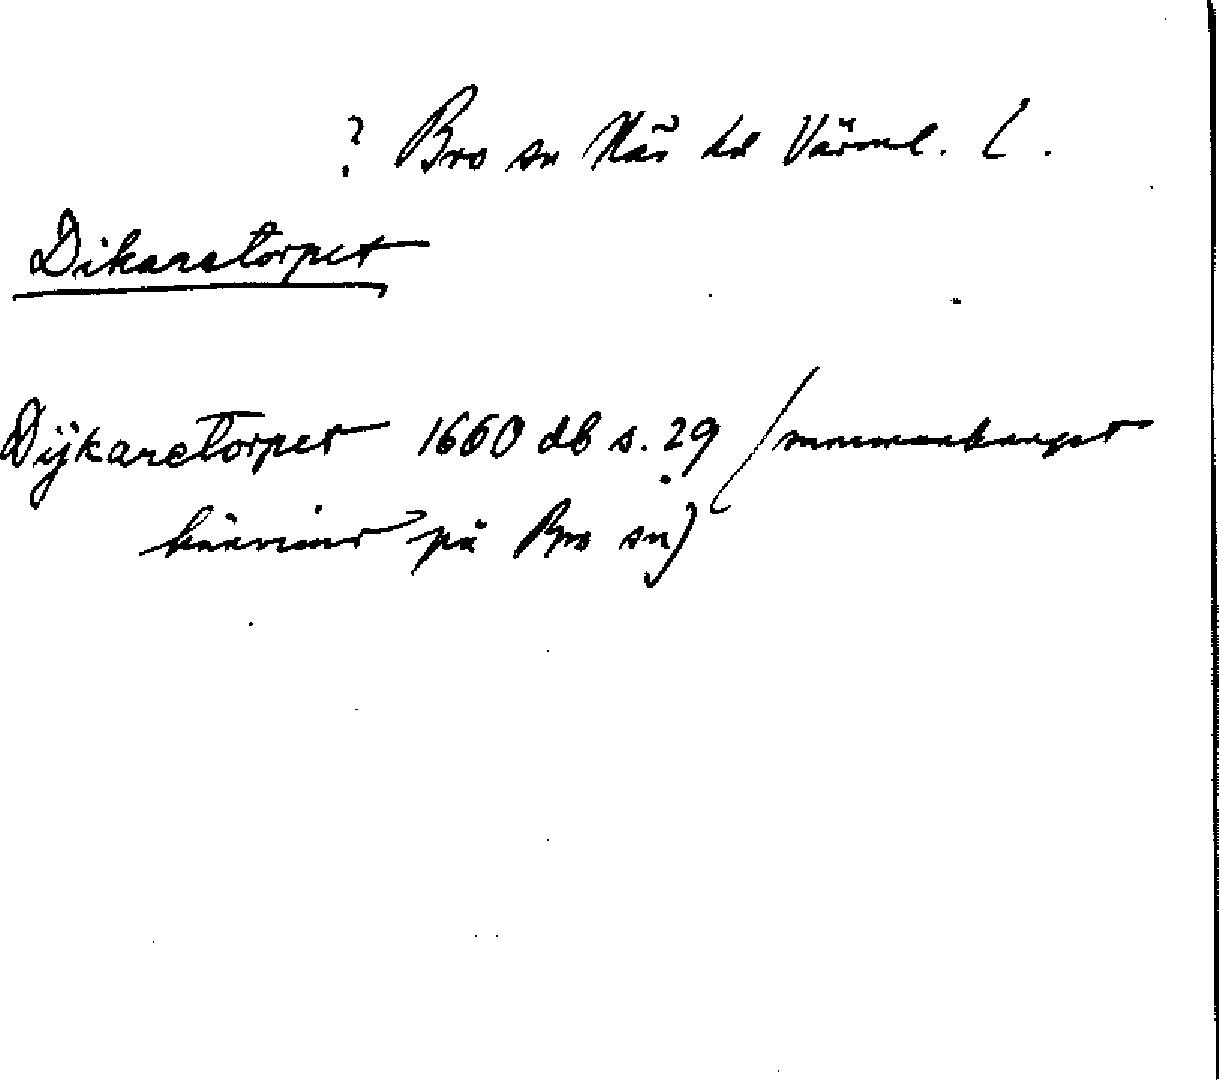 ? Bro sn Näs hd Värml. l.
Dikaretorpet
Dijkaretorpet 1660 db s. 29 (sammanhanget
hänvisar på Bro sn)